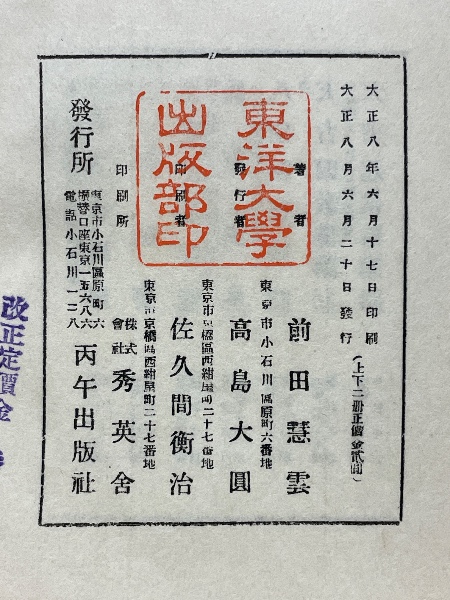 大正八年六月十七日印刷
大正八年六月二十日發行
(上下二册正價金貳圓)
著者 前田慧雲
東京市小石川區原町六番地
發行者 高島大圓
東京市京橋區西紺屋町二十七番地
印刷者 佐久間衡治
東京市京橋區西紺屋町二十七番地
印刷所 株式會社 秀英舍
發行所
東京市小石川區原町六
振替口座東京一五六八六
電話小石川一二八
丙午出版社
東洋大學
出版部印
改正定價金